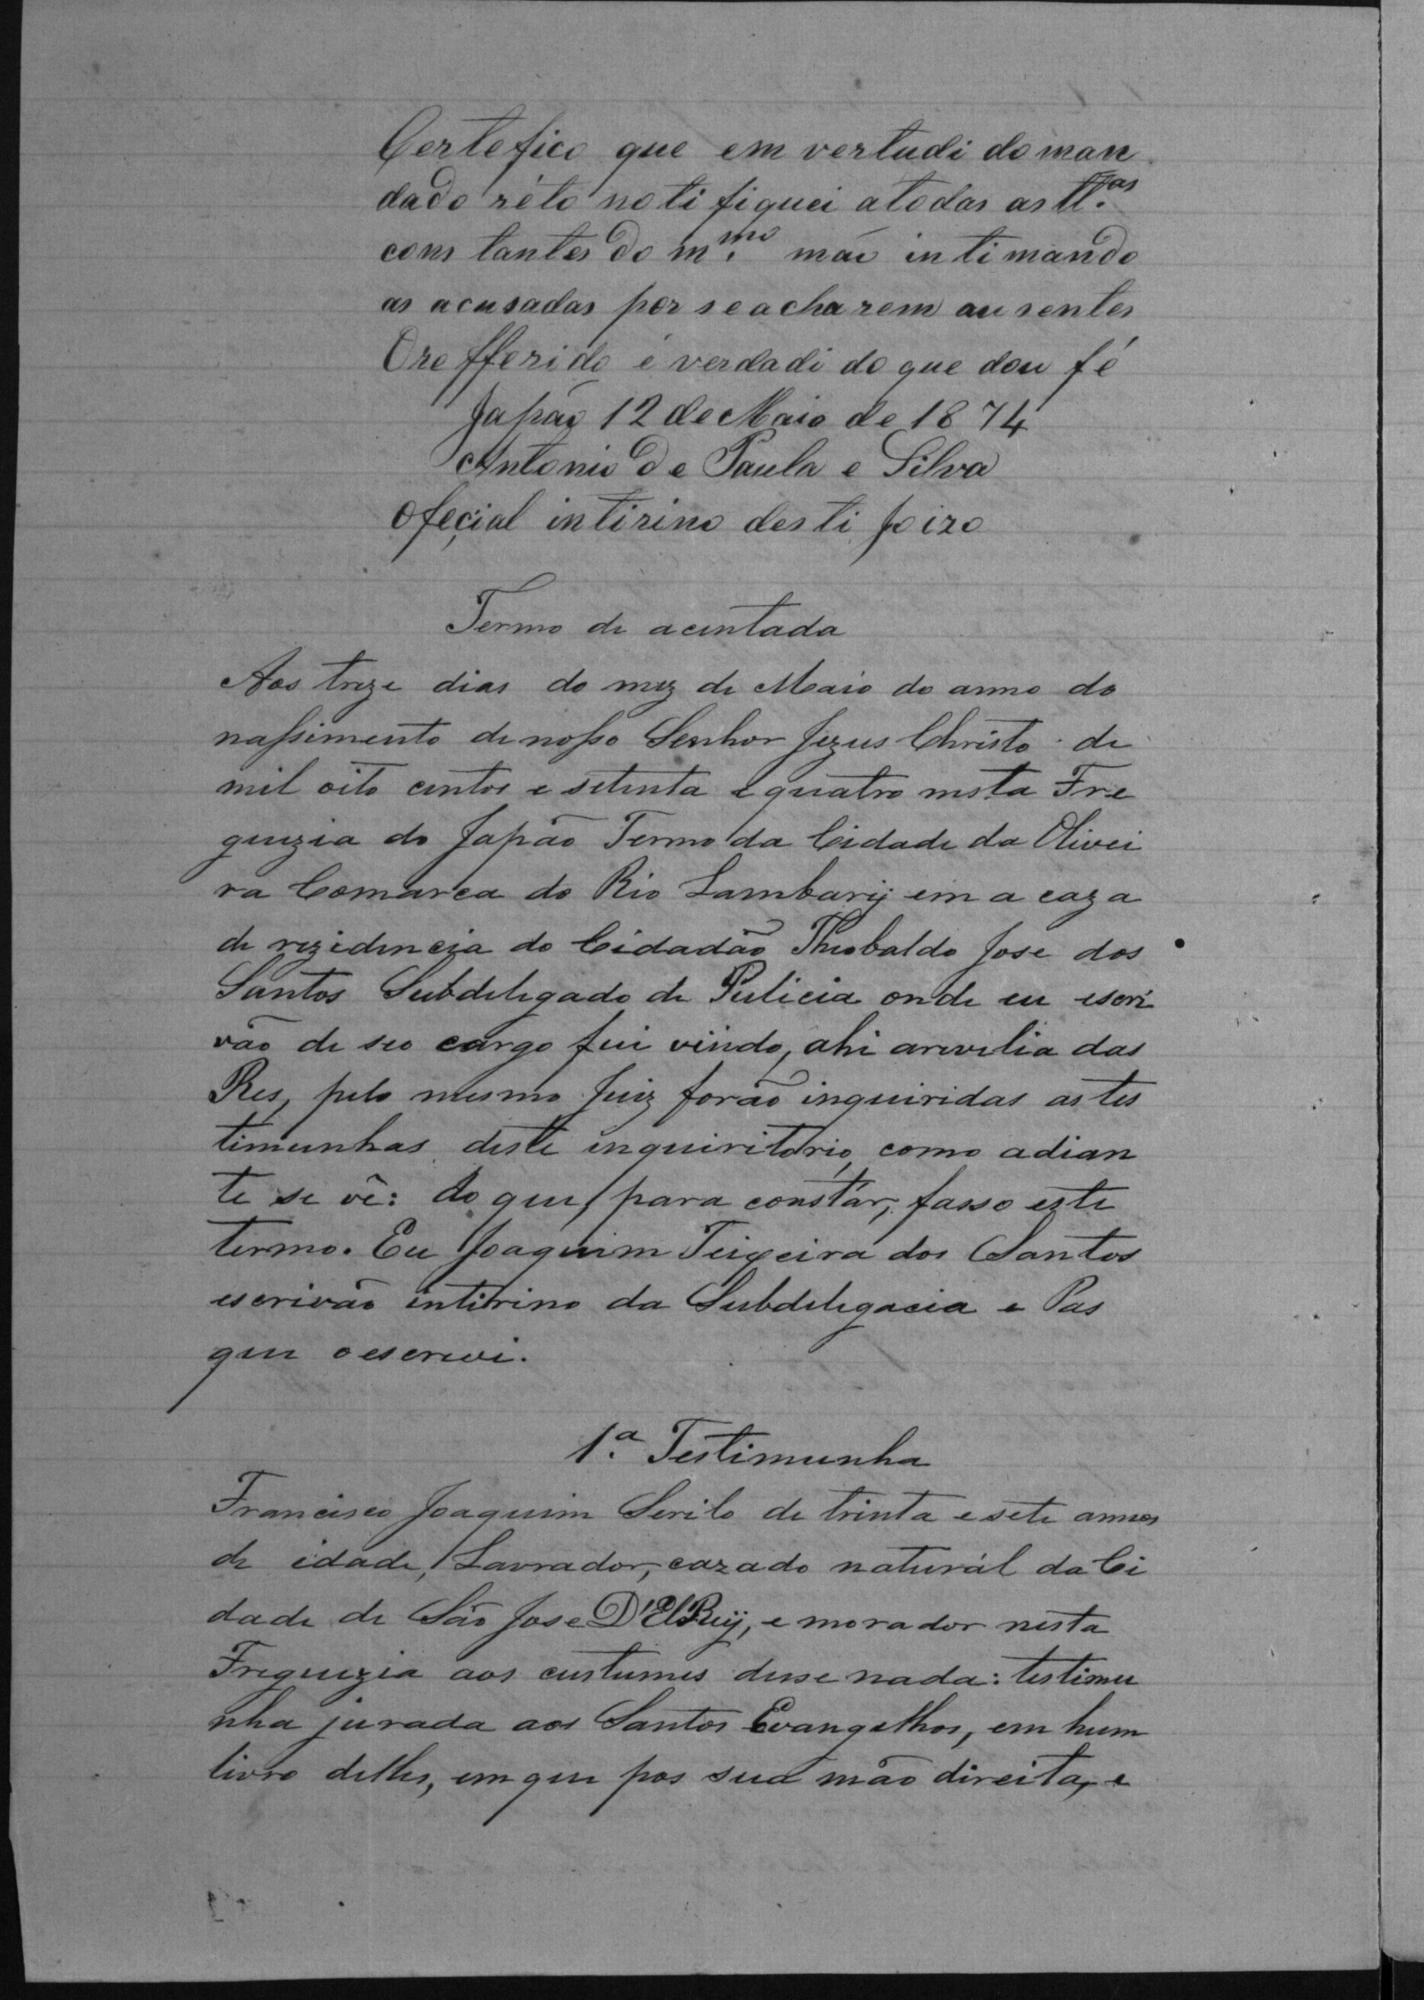 Certefico que em vertudi do man
dado réto notifiquei atodas as tt.as
constantes do m.mo não intimando
as acusadas por se acharem ausentes
Orefferido é verdadi do que dou fé
Japão 12 de Maio de 1874
Antonio de Paula e Silva
Ofecial intirino desti Joizo
Termo de acentada
Aos treze dias do mez de Maio do anno do
nassimento de nosso Senhor Jezus Christo de
mil oito centos e setenta e quatro nesta Fre
guezia do Japão Termo da Cidade da Olivei
ra Comarca do Rio Lambarij em a caza
de rezidencia do Cidadão Theobaldo Jose dos
Santos Subdelegado de Pulicia onde eu escri
vão de seo cargo fui vindo, ahi arevelia das
Res, pelo mesmo Juiz forão inquiridas as tes
timunhas deste inquiritorio, como adian
te se vê: do que, para constár, fasso este
termo. Eu Joaquim Teixeira dos Santos
escrivão intirino da Subdelegacia e Pas
que oescrevi.
1.a Testimunha
Francisco Joaquim Serilo de trinta e sete annos
de idade, Lavrador, cazado naturál da Ci
dade de São Jose D'El Reÿ, e morador nesta
Freguezia aos custumes disse nada: testimu
nha jurada aos Santos Evangelhos, em hum
livro delles, em que pos sua mão direita, e